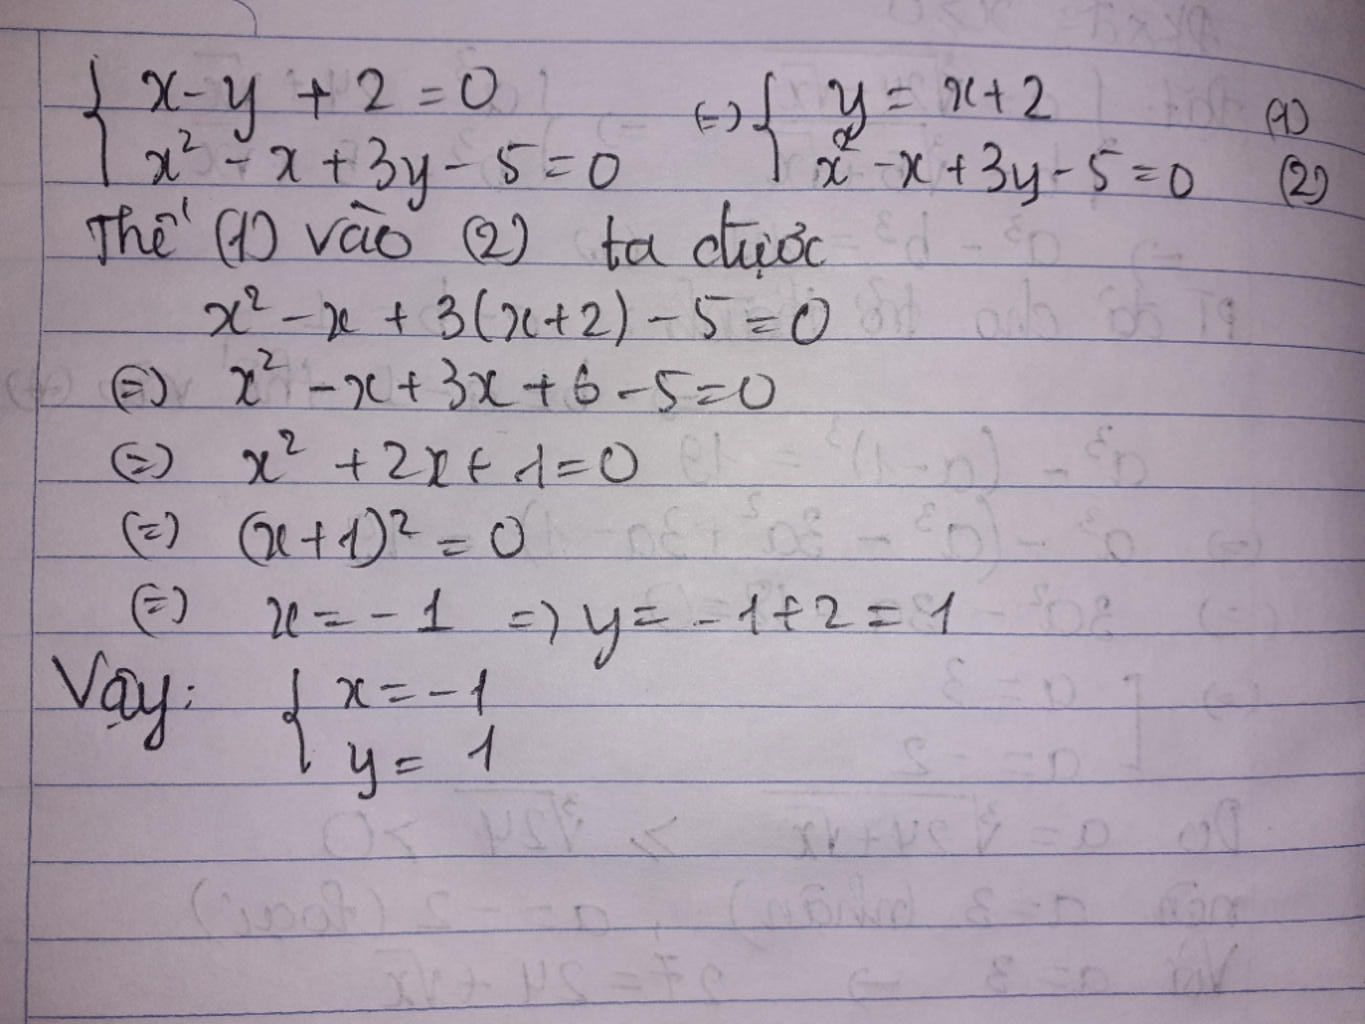 { x - y + 2 = 0 (=) { y = x + 2 (1)
x² - x + 3y - 5 = 0 x² - x + 3y - 5 = 0 (2)
Thế (1) vào (2) ta được
x² - x + 3(x+2) - 5 = 0
(=) x² - x + 3x + 6 - 5 = 0
(=) x² + 2x + 1 = 0
(=) (x+1)² = 0
(=) x = -1 => y = -1 + 2 = 1
Vậy: { x = -1
y = 1